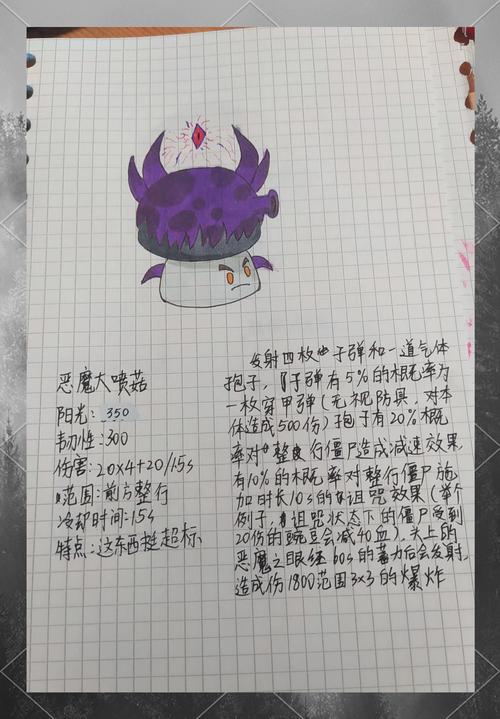 恶魔大喷菇
阳光：350
韧性：300
伤害：20x4+20/1.5s
范围：前方整行
冷却时间：15s
特点：这东西挺超标
发射四枚子弹和一道气体
孢子，子弹有5%的概率为
一枚穿甲弹（无视防具，对本
体造成500伤）孢子有20%概
率对整行僵尸造成减速效果，
有10%的概率对整行僵尸施
加时长10s的诅咒效果（举个
例子，诅咒状态下的僵尸受到
20伤的豌豆会减40血），头上的
恶魔之眼经60s的蓄力后会发射，
造成伤1800范围3x3的爆炸